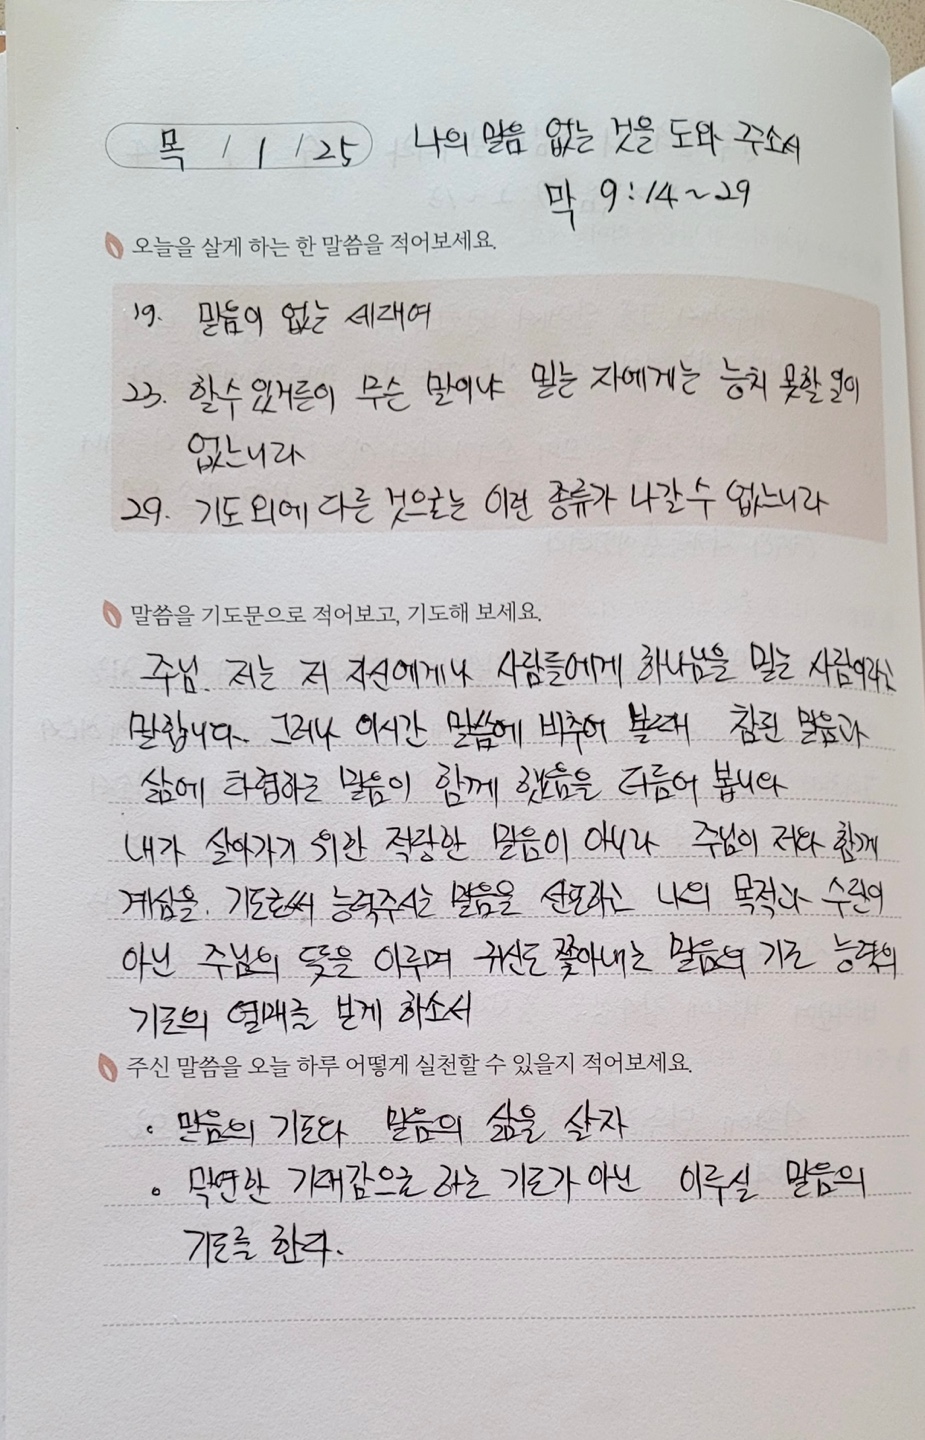 목 / 1 / 25 나의 믿음 없는 것을 도와 주소서
막 9:14~29
오늘을 살게 하는 한 말씀을 적어보세요.
19. 믿음이 없는 세대여
23. 할수 있거든이 무슨 말이냐 믿는 자에게는 능치 못할 일이
없느니라
29. 기도 외에 다른 것으로는 이런 종류가 나갈 수 없느니라
말씀을 기도문으로 적어보고, 기도해 보세요.
주님. 저는 저 자신에게나 사람들에게 하나님을 믿는 사람이라고
말합니다. 그러나 이시간 말씀에 비추어 볼때 참된 믿음과
삶에 타협하는 믿음이 함께 했음을 더듬어 봅니다
내가 살아가기 위한 적당한 믿음이 아니라 주님이 저와 함께
계심을. 기도로써 능력주시는 믿음을 선포하고 나의 목적과 수단이
아닌 주님의 뜻을 이루며 귀신도 쫓아내는 믿음의 기도 능력의
기도의 열매를 맺게 하소서
주신 말씀을 오늘 하루 어떻게 실천할 수 있을지 적어보세요.
• 믿음의 기도와 믿음의 삶을 살자
• 막연한 기대감으로 하는 기도가 아닌 이루실 믿음의
기도를 한다.